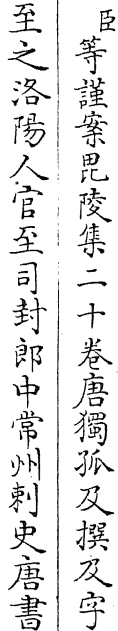 臣等謹案毘陵集二十卷唐獨孤及撰及字
至之洛陽人官至司封郎中常州刺史唐書